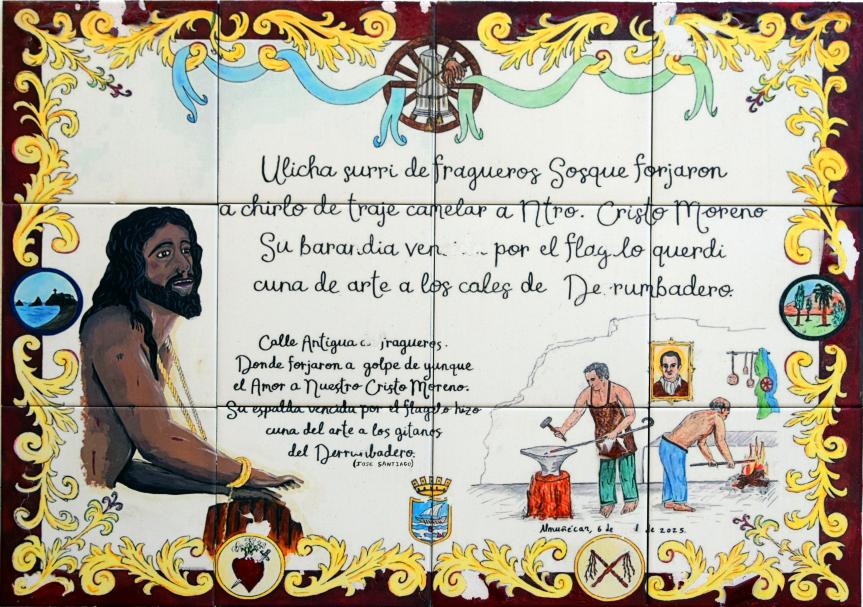 Ulicha surri de fragueros Sosque forjaron
a chirlo de traje camelar a Ntro. Cristo Moreno
Su por el querdi
cuna de arte a los cales de
Calle Antigua
Donde forjaron a golpe de yunque
el Amor a Nuestro Cristo Moreno.
Su espalda vencida por el hizo
cuna del arte a los gitanos
del
(JOSE SANTIAGO)
Almuñécar, 6 de de 2025.